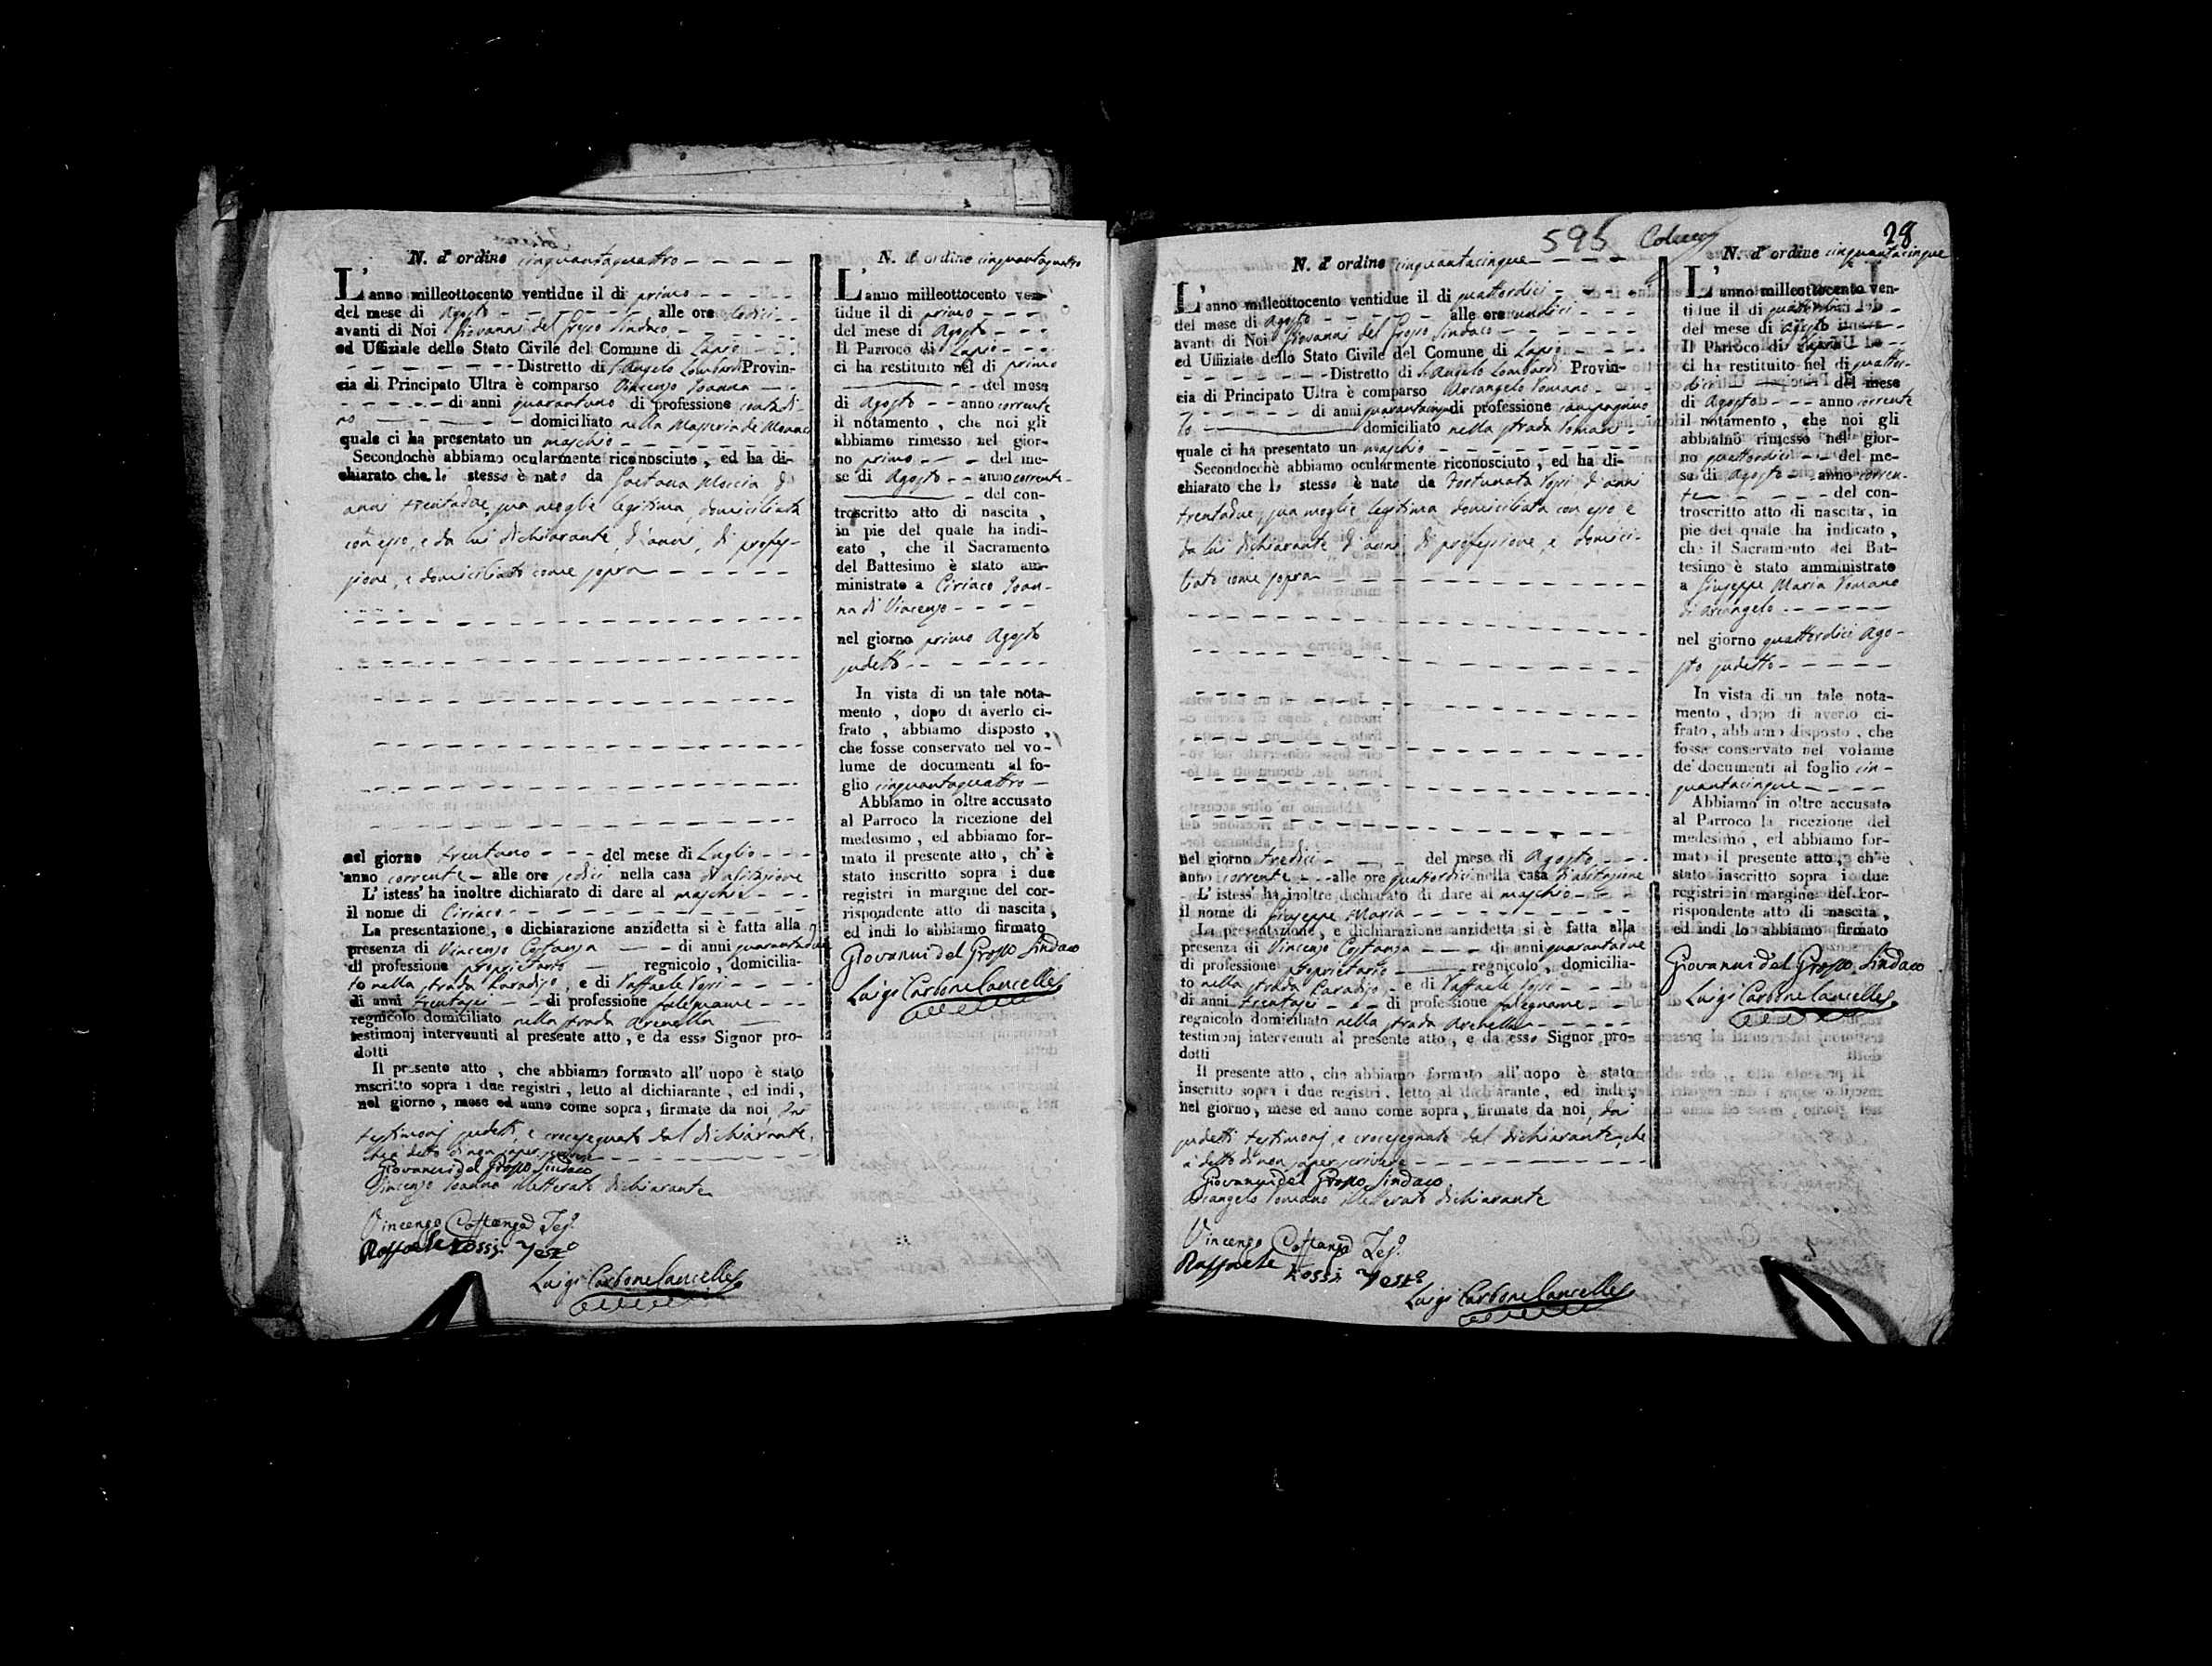 N. d' ordine cinquantaquattro
L' anno milleottocento ventidue il di primo
del mese di Agosto alle ore dodici
avanti di Noi Giovanni del Grosso Sindaco
ed Uffiziale dello Stato Civile del Comune di Lapio
Distretto di S. Angelo Lombardi Provin-
cia di Principato Ultra è comparso Vincenzo Ioanna
di anni quarantuno di professione contadi-
no domiciliato nella Masseria de
quale ci ha presentato un maschio
Secondochè abbiamo ocularmente riconosciuto, ed ha di-
chiarato che lo stesso è nato da Gaetana Moccia d'
anni trentadue sua moglie legitima, domiciliata
con esso, e da lui dichiarante, d'anni, di profes-
sione, e domiciliato come sopra
nel giorno trentuno del mese di Luglio
anno corrente alle ore sedici nella casa d'abitazione
L' istess' ha inoltre dichiarato di dare al maschio
il nome di Ciriaco
La presentazione, e dichiarazione anzidetta si è fatta alla
presenza di Vincenzo Costanza di anni quarantadue
di professione proprietario regnicolo, domicilia-
to nella strada Paradiso, e di Raffaele Rossi
di anni trentasei di professione falegname
regnicolo domiciliato nella strada Arenella
testimonj intervenuti al presente atto, e da esso Signor pro-
dotti
Il presente atto, che abbiamo formato all' uopo è stato
inscritto sopra i due registri, letto al dichiarante, ed indi,
nel giorno, mese ed anno come sopra, firmate da noi, dai
testimonj sudetti, e crocesegnato dal dichiarante,
che à detto di non saper scrivere
Giovanni del Grosso Sindaco
Vincenzo Ioanna illetterato dichiarante
Vincenzo Costanza Tes.o
Raffaele Rossi Test.o
Luigi Carbone Cancelle
N. d' ordine cinquantaquattro
L' anno milleottocento ven-
tidue il di primo
del mese di Agosto
Il Parroco di Lapio
ci ha restituito nel di primo
del mese
di Agosto anno corrente
il notamento, che noi gli
abbiamo rimesso nel gior-
no primo del me-
se di Agosto anno corrente
del con-
troscritto atto di nascita,
in pie del quale ha indi-
cato, che il Sacramento
del Battesimo è stato am-
ministrato a Ciriaco Ioan-
na di Vincenzo
nel giorno primo Agosto
sudetto
In vista di un tale nota-
mento, dopo di averlo ci-
frato, abbiamo disposto,
che fosse conservato nel vo-
lume de documenti al fo-
glio cinquantaquattro
Abbiamo in oltre accusato
al Parroco la ricezione del
medesimo, ed abbiamo for-
mato il presente atto, ch' è
stato inscritto sopra i due
registri in margine del cor-
rispondente atto di nascita,
ed indi lo abbiamo firmato
Giovanni del Grosso Sindaco
Luigi Carbone Cancelle
595 28
N. d' ordine cinquantacinque
L' anno milleottocento ventidue il di quattordici
del mese di Agosto alle ore undici
avanti di Noi Giovanni del Grosso Sindaco
ed Uffiziale dello Stato Civile del Comune di Lapio
Distretto di S. Angelo Lombardi Provin-
cia di Principato Ultra è comparso Arcangelo Romano
di anni quarantacinque di professione campagnuo
lo domiciliato nella strada Roman
quale ci ha presentato un maschio
Secondocchè abbiamo ocularmente riconosciuto, ed ha di-
chiarato che lo stesso è nato da Fortunata Rossi d'anni
trentadue, sua moglie legitima domiciliata con esso e
da lui dichiarante d'anni, di professione, e domici-
liato come sopra
nel giorno tredici del mese di Agosto
anno corrente alle ore quattordici nella casa d'abitazione
L' istess' ha inoltre dichiarato di dare al maschio
il nome di Giuseppe Maria
La presentazione, e dichiarazione anzidetta si è fatta alla
presenza di Vincenzo Costanza di anni quarantadue
di professione proprietario regnicolo, domicilia-
to nella strada Paradiso e di Raffaele Rossi
di anni trentasei di professione falegname
regnicolo domiciliato nella strada Arenella
testimonj intervenuti al presente atto, e da esso Signor pro-
dotti
Il presente atto, che abbiamo formato all' uopo è stato
inscritto sopra i due registri, letto al dichiarante, ed indi,
nel giorno, mese ed anno come sopra, firmate da noi, dai
sudetti testimonj, e crocesegnato dal dichiarante, che
à detto di non saper scrivere
Giovanni del Grosso Sindaco
Arcangelo Romano illetterato dichiarante
Vincenzo Costanza Tes.o
Raffaele Rossi Test.o
Luigi Carbone Cancelle
N. d' ordine cinquantacinque
L' anno milleottocento ven-
tidue il di quattordici
del mese di Agosto
Il Parroco di Lapio
ci ha restituito nel di quattor-
dici del mese
di Agosto anno corrente
il notamento, che noi gli
abbiamo rimesso nel gior-
no quattordici del me-
se di Agosto anno corren-
te del con-
troscritto atto di nascita, in
pie del quale ha indicato,
che il Sacramento del Bat-
tesimo è stato amministrato
a Giuseppe Maria Romano
di Arcangelo
nel giorno quattordici Ago-
sto sudetto
In vista di un tale nota-
mento, dopo di averlo ci-
frato, abbiamo disposto, che
fosse conservato nel volume
de' documenti al foglio cin-
quantacinque
Abbiamo in oltre accusato
al Parroco la ricezione del
medesimo, ed abbiamo for-
mato il presente atto, ch'è
stato inscritto sopra i due
registri in margine del cor-
rispondente atto di nascita,
ed indi lo abbiamo firmato
Giovanni del Grosso Sindaco
Luigi Carbone Cancelle